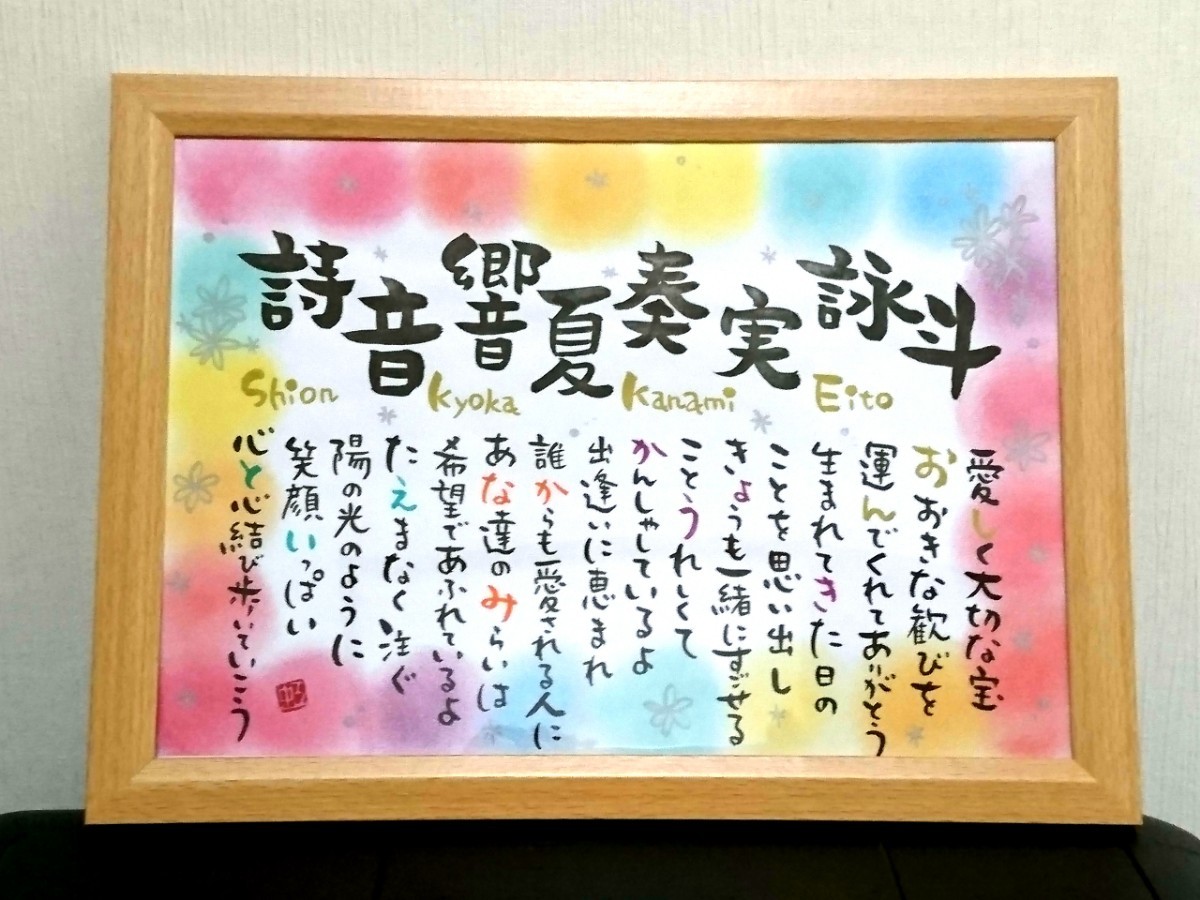 詩音 響夏 奏実 詠斗
Shion Kyoka Kanami Eito
愛しく大切な宝
おおきな歓びを
運んでくれてありがとう
生まれてきた日の
ことを思い出し
きょうも一緒にすごせる
ことうれしくて
かんしゃしているよ
出逢いに恵まれ
誰からも愛される人に
あな達のみらいは
希望であふれているよ
たえまなく注ぐ
陽の光のように
笑顔いっぱい
心と心結び歩いていこう